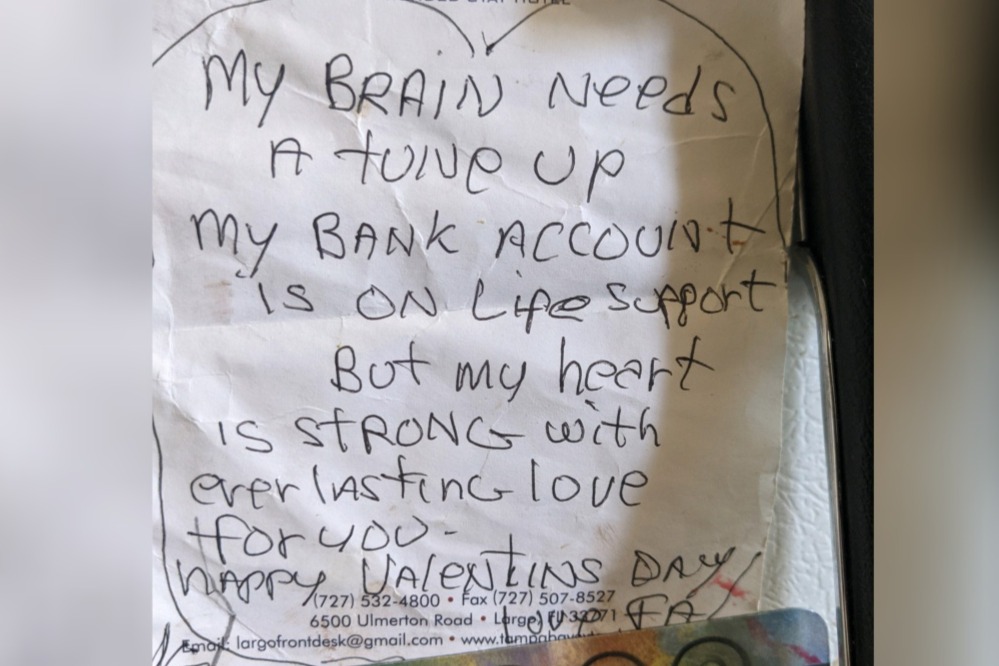 HOTEL
My BRAIN Needs
A tuNe up
My BANK ACCOUNt
is ON Life Support
But my heart
is stRONG with
everlAsting love
for you -
HAppy VAleNtINs DAy
(727) 532-4800 • Fax (727) 507-8527
6500 Ulmerton Road • Largo, Fl 33771
Email: largofrontdesk@gmail.com •